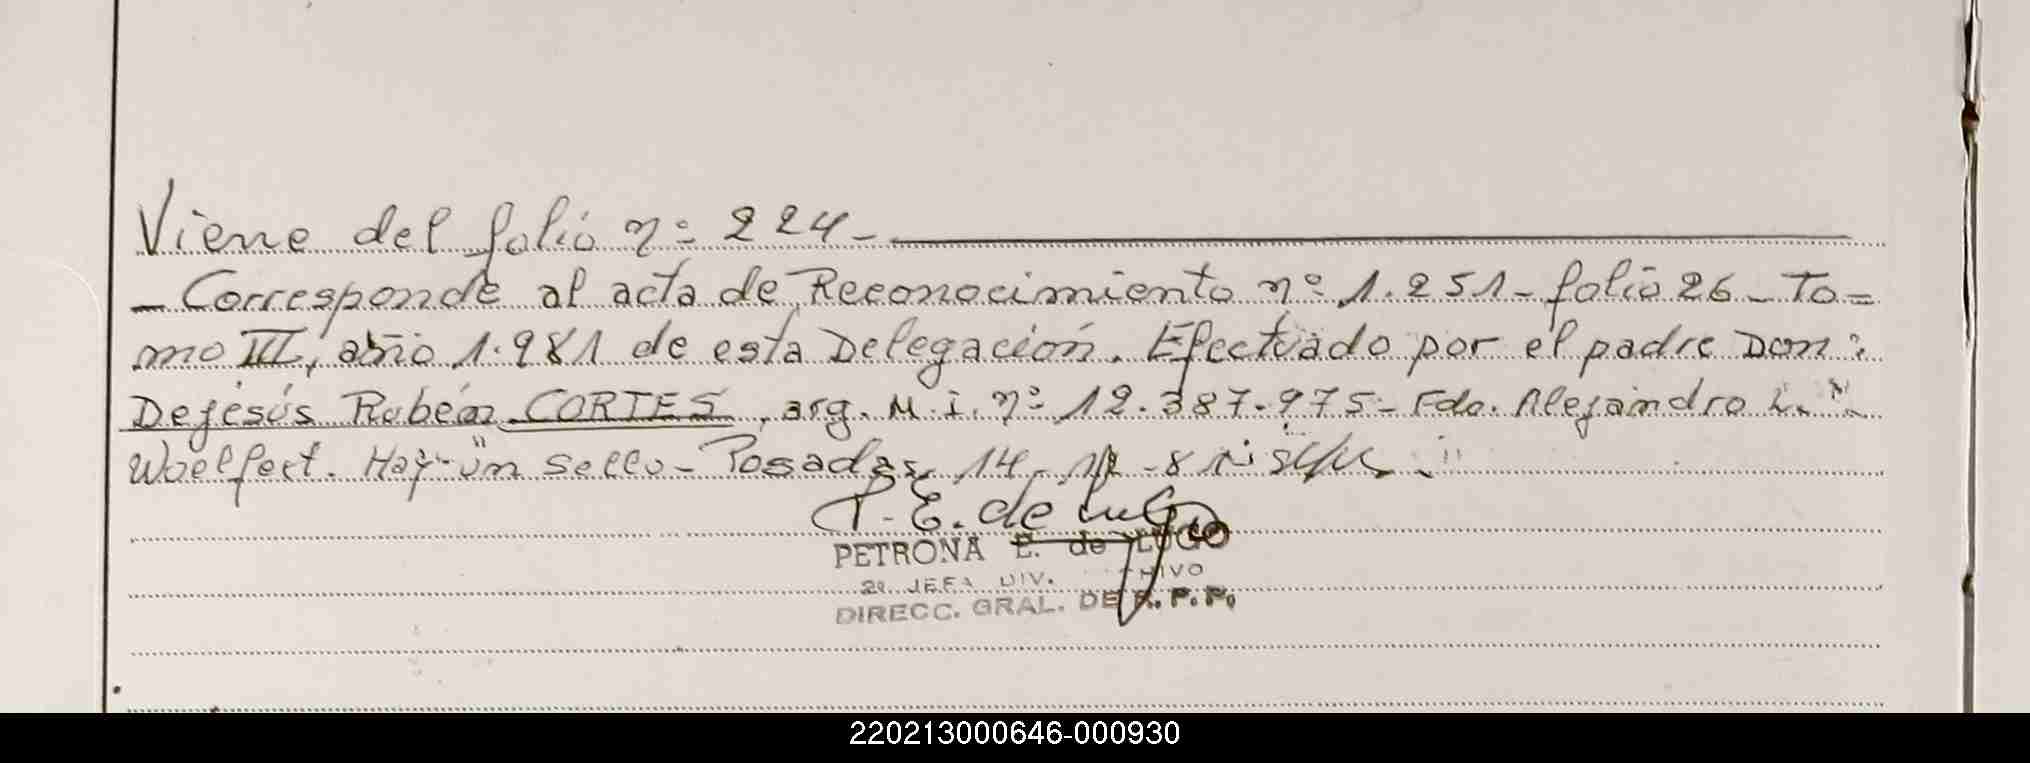 Viene del folio nº 224-
- Corresponde al acta de Reconocimiento nº 1.251- folio 26 - To=
mo III, año 1.981 de esta Delegación. Efectuado por el padre Don:
Dejesús Rubén CORTES, arg. M.I. nº 12.387.975- Fdo. Alejandro L.
Woelfert. Hay un sello - Posadas, 14
P. E. de Lugo
PETRONA E. de LUGO
2a JEFA DIV.
DIRECC. GRAL. DE R. P. P.
220213000646-000930